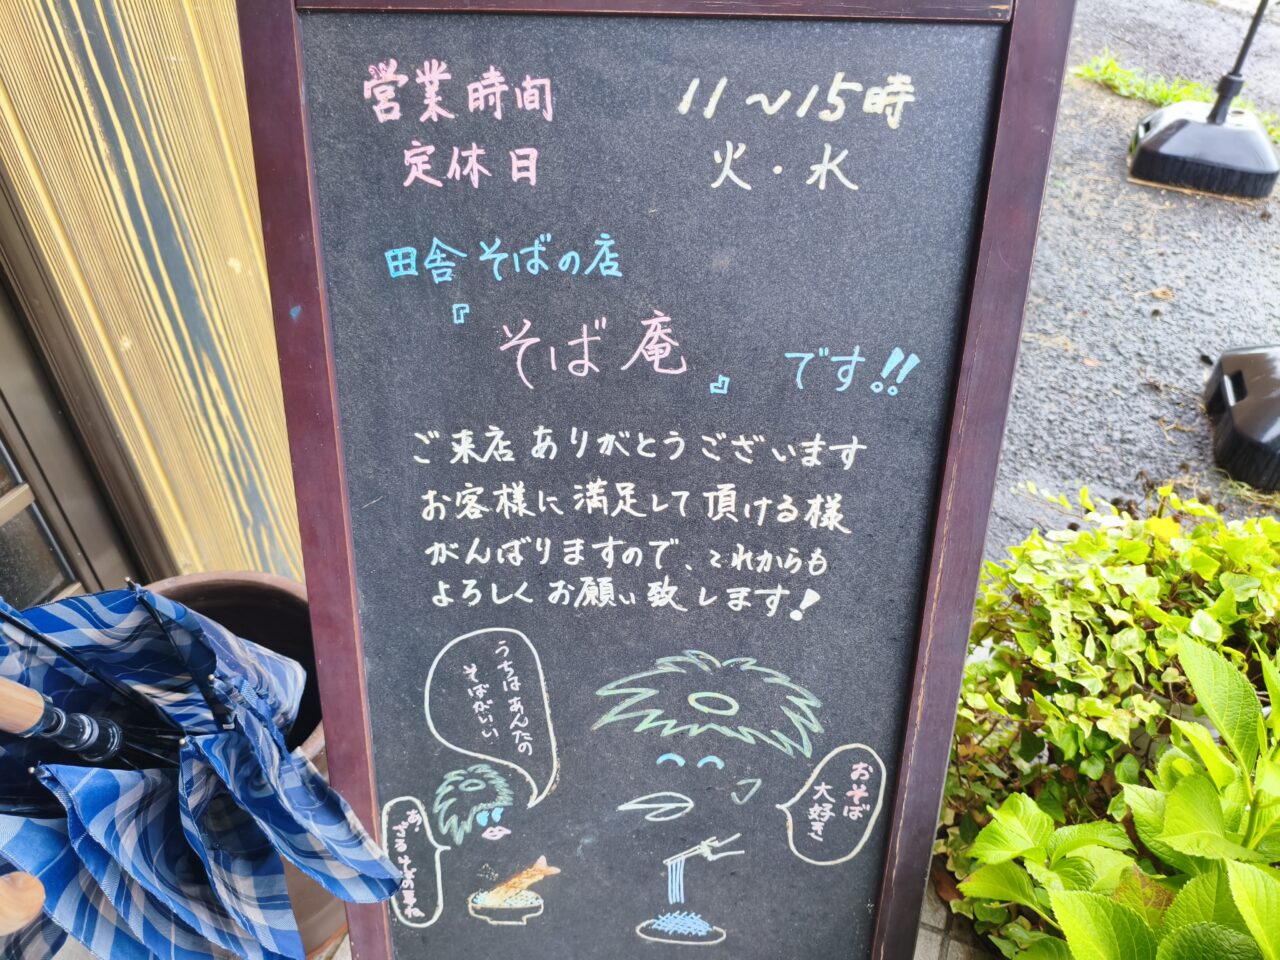 営業時間 11~15時
定休日 火・水
田舎そばの店
『そば庵』です!!
ご来店ありがとうございます
お客様に満足して頂ける様
がんばりますので、これからも
よろしくお願い致します!
うちはあんたの
そばがいい
あ、
ざるそばの事ね
おそば
大好き